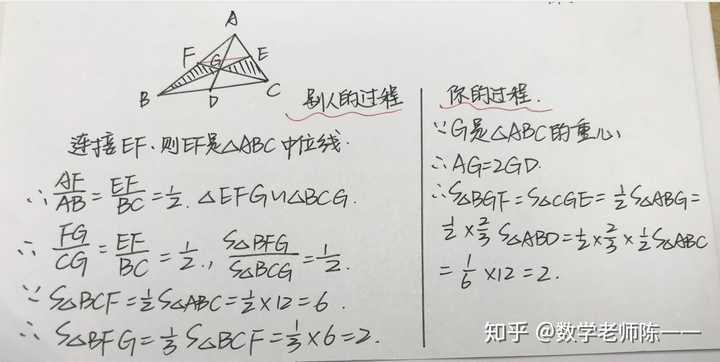 A
F
G
E
B
D
C
别人的过程
连接EF,则EF是△ABC中位线.
∴ AF/AB = EF/BC = 1/2. △EFG∽△BCG.
∴ FG/CG = EF/BC = 1/2, S△BFG/S△BCG = 1/2.
∵ S△BCF = 1/2 S△ABC = 1/2 × 12 = 6.
∴ S△BFG = 1/3 S△BCF = 1/3 × 6 = 2.
你的过程.
∵ G是△ABC的重心,
∴ AG=2GD.
∴ S△BGF = S△CGE = 1/2 S△ABG =
1/2 × 2/3 S△ABD = 1/2 × 2/3 × 1/2 S△ABC
= 1/6 × 12 = 2.
知乎 @数学老师陈一一